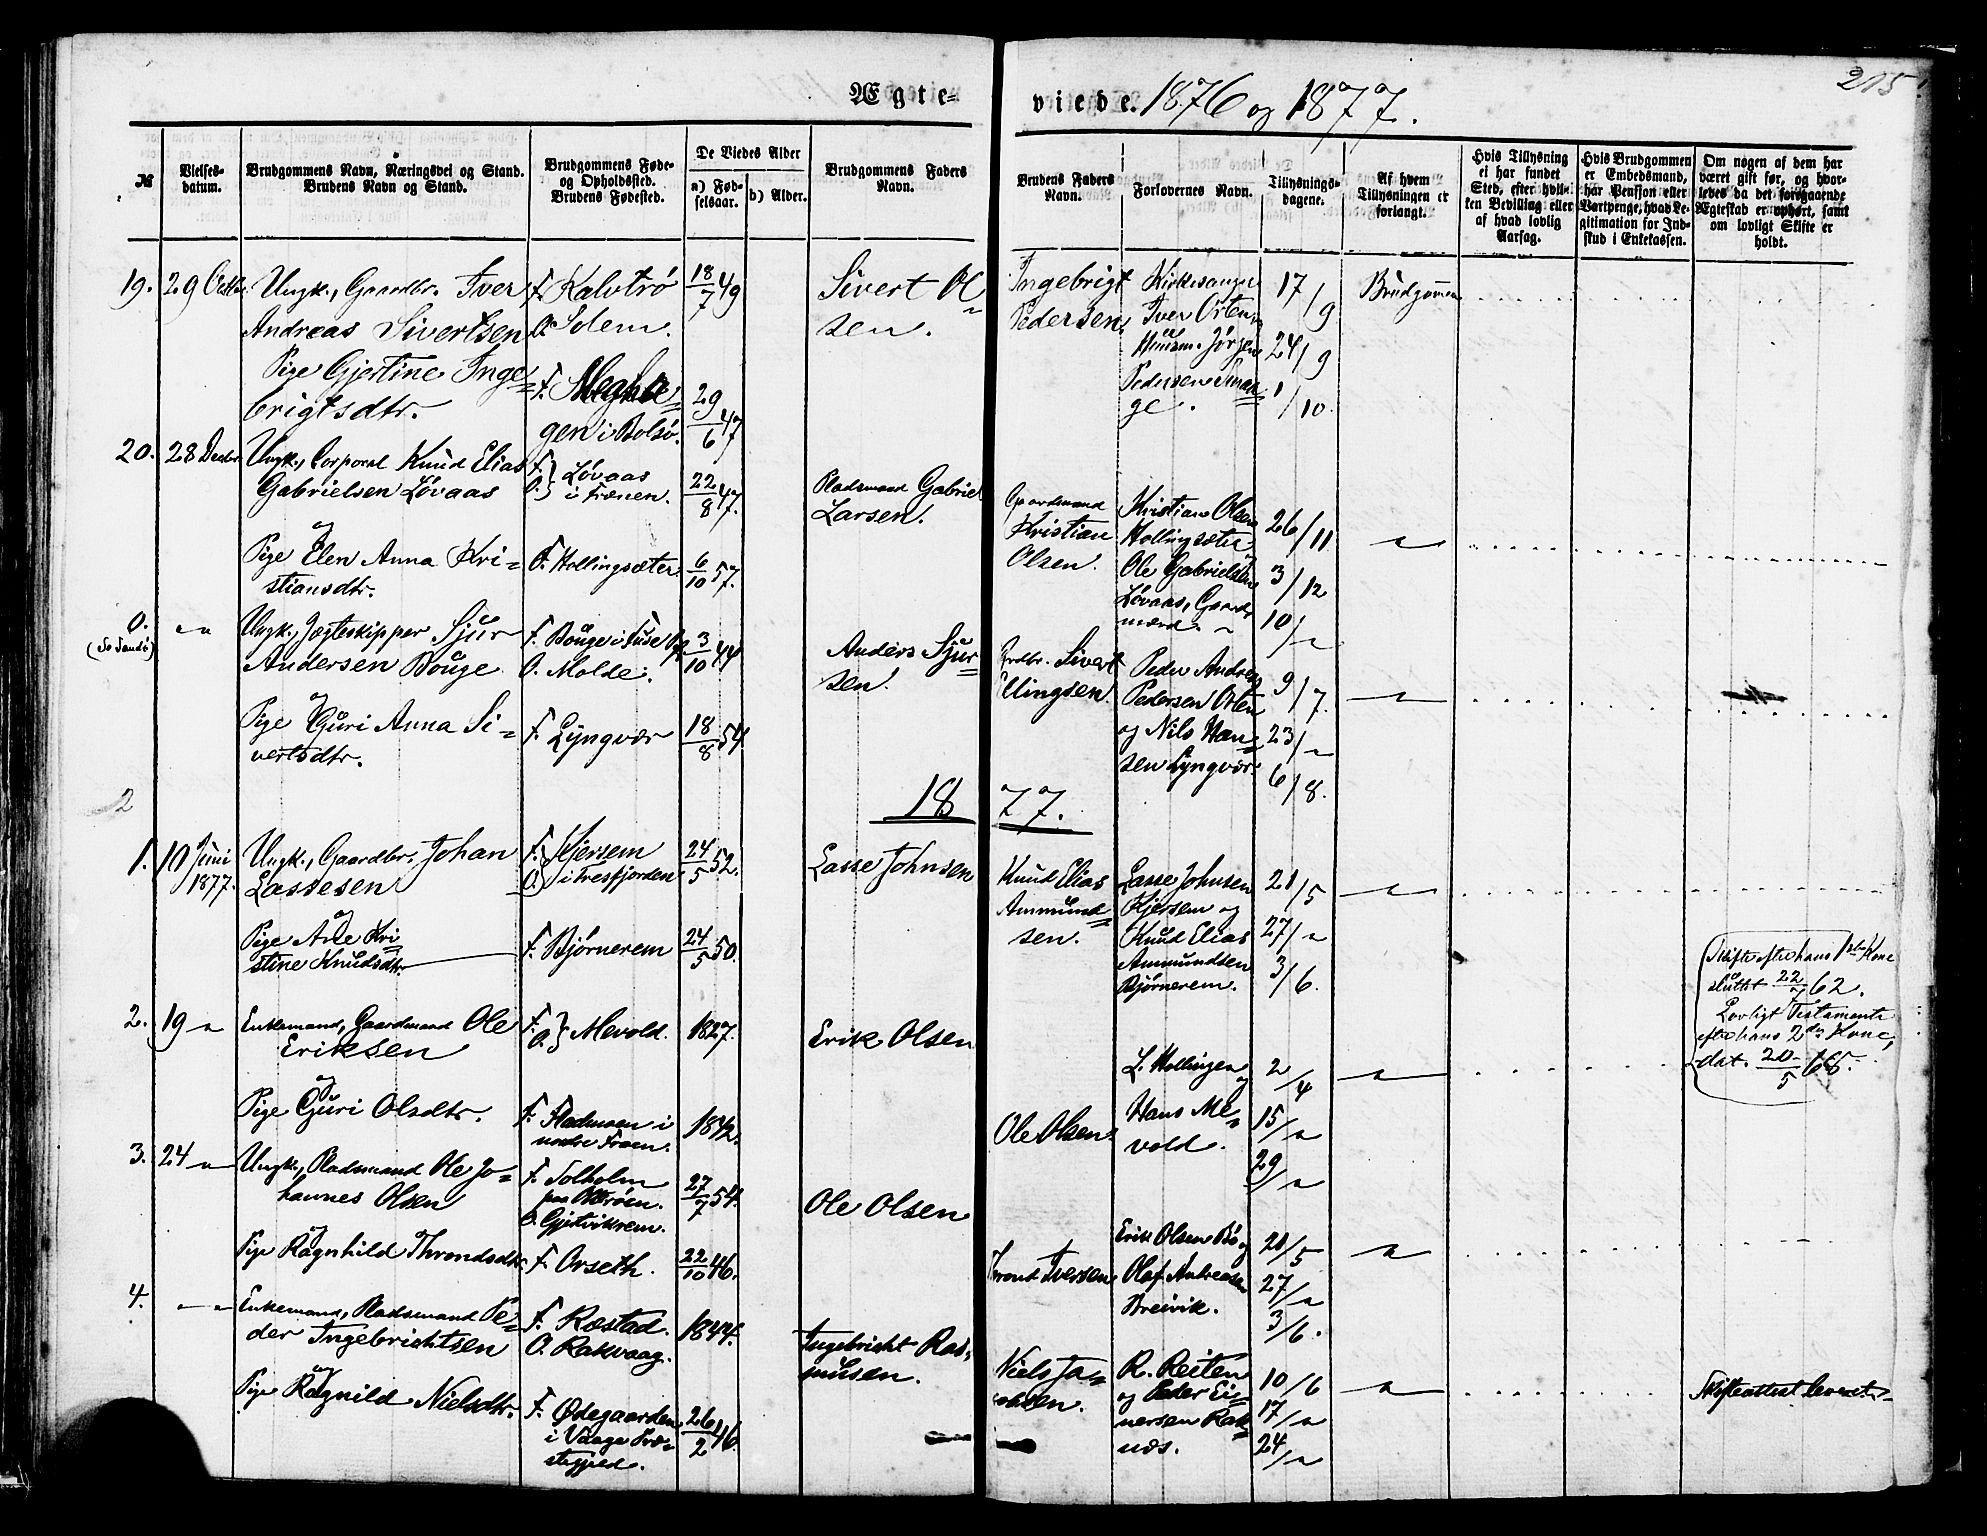 215.
Ægte-
viede. 1876 og 1877.
№
Vielses-
datum.
Brudgommens Navn, Næringsvei og Stand.
Brudens Navn og Stand.
Brudgommens Føde-
og Opholdssted.
Brudens Fødested.
De Viedes Alder
a) Fød-
selsaar.
b) Alder.
Brudgommens Faders
Navn.
Brudens Faders
Navn.
Forlovernes Navn.
Tillysnings-
dagene.
Af hvem
Tillysningen er
forlangt.
Hvis Tillysning
ei har fundet
Sted, efter hvil-
ken Bevilling eller
af hvad lovlig
Aarsag.
Hvis Brudgommen
er Embedsmand,
har Pension eller
Vartpenge, hvad Le-
gitimation for Ind-
skud i Enkekassen.
Om nogen af dem har
været gift før, og hvor-
ledes da det foregaaende
Ægteskab er ophørt, samt
om lovligt Skifte er
holdt.
19. 29 Octbr.
Ungk., Gaardbr. Iver
Andreas Sivertsen
Pige Gjertine Inge=
brigtsdtr.
F. Kalvtrø
O. Solem.
F.
gen i Bolsø.
18/7 49
29/6 47
Sivert Ol=
sen.
Ingebrigt
Pedersen.
Kirkesanger
Iver Orten
Huusm. Jørgen
Pedersen
17/9
24/9
1/10.
Brudgommen
20. 28 Decbr.
Ungk., Corporal Knud Elias
Gabrielsen Løvaas
og
Pige Elen Anna Kri=
stiansdtr.
F.
O. } Løvaas
i Frænen.
F. Hollingsæter.
22/8 47.
6/10 57.
Pladsmand Gabriel
Larsen.
Gaardmand
Kristian
Olsen.
Kristian Olsen
Hollingsæter
og
Ole Gabrielsen
Løvaas, Gaard=
mænd.
26/11
3/12
10/"
"
0.
(Se Sandø)
"
Ungk., Jægteskipper Sjur
Andersen Bouge
og
Pige Guri Anna Si=
vertsdtr.
F. Bouge i Fuse
O. Molde.
F. Lyngvær
3/10 44
18/8 54
Anders Sjur=
sen.
Grdbr. Sivert
Ellingsen.
Peder Andreas
Pedersen Orten
og Nils Han=
sen Lyngvær.
9/7.
23/"
6/8.
"
1877.
1. 10 Juni
1877.
Ungk., Gaardbr. Johan
Lassesen
og
Pige Ane Kri=
stine Knudsdtr.
F.
O. } Kjersem
i Tresfjorden
F. Bjørnerem
24/5 52.
24/5 50.
Lasse Johnsen
Knud Elias
Ammund=
sen.
Lasse Johnsen
Kjersem og
Knud Elias
Ammundsen
Bjørnerem.
21/5
27/"
3/6.
"
2. 19 "
Enkemand, Gaardmand Ole
Eriksen
og
Pige Guri Olsdtr.
F.
O. } Mevold.
F. Stadmoen i
nordre Fraen.
1827.
1842.
Erik Olsen
Ole Olsen.
L. Hollingen
og
Hans Me=
vold.
2/4
15/"
29/"
"
Skifte efter hans 1ste Kone
sluttet 22/7 62.
Lovligt Testamente
efter hans 2den Kone,
dat. 20/5 68.
3. 24 "
Ungk., Pladsmand Ole Jo=
hannes Olsen
og
Pige Ragnhild Throndsdtr.
F. Solholm
paa Otterøen.
O. Gjetvikrem.
F. Orseth.
27/7 54.
22/10 46.
Ole Olsen
Thrond Iversen
Erik Olsen Bø og
Olaf Andreasen
Breivik.
20/5
27/"
3/6.
"
4. "
Enkemand, Pladsmand Pe=
der Ingebrichtsen
og
Pige Ragnild Nielsdtr.
F. Ræstad.
O. Rakvaag.
F. Ødegaarden
i Vaage Præ=
stegjeld.
1844.
26/2 46.
Ingebricht Ras=
musen.
Niels Ja=
cobsen.
R. Reiten
og Peder Ei=
nersen Rak=
næs.
10/6
17/"
24/"
"
Skifteattest leveret.